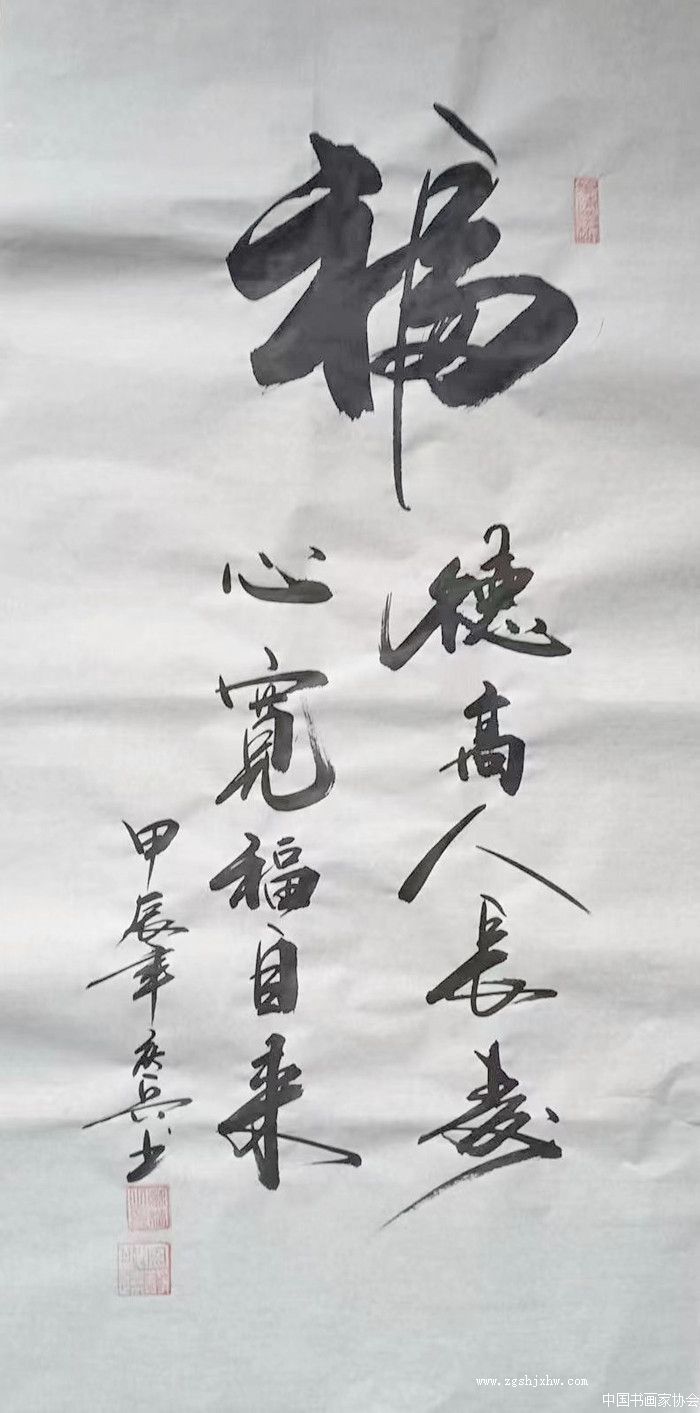 福
德高人長寿
心寬福自來
甲辰年庆兵书
www.zgshjxhw.com
中国书画家协会